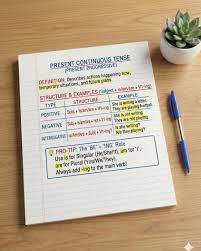 PRESENT CONTINUOUS TENSE
(PRESENT PROGRESSIVE)
DEFINITION: Describes actions happening now,
temporary situations, and future plans.
STRUCTURE & EXAMPLES (Subject + is/am/are + V1+ing)
TYPE STRUCTURE EXAMPLE
POSITIVE Subj + is/am/are + V1+ing She is writing a letter.
They are playing football.
NEGATIVE She is not writing.
They are not playing.
INTERROGATIVE Is she writing?
Are they playing?
PRO-TIP: The 'BE' + 'ING' Rule
Use is for Singular (He/She/It), am for 'I',
are for Plural (You/We/They).
Always add -ing to the main verb!